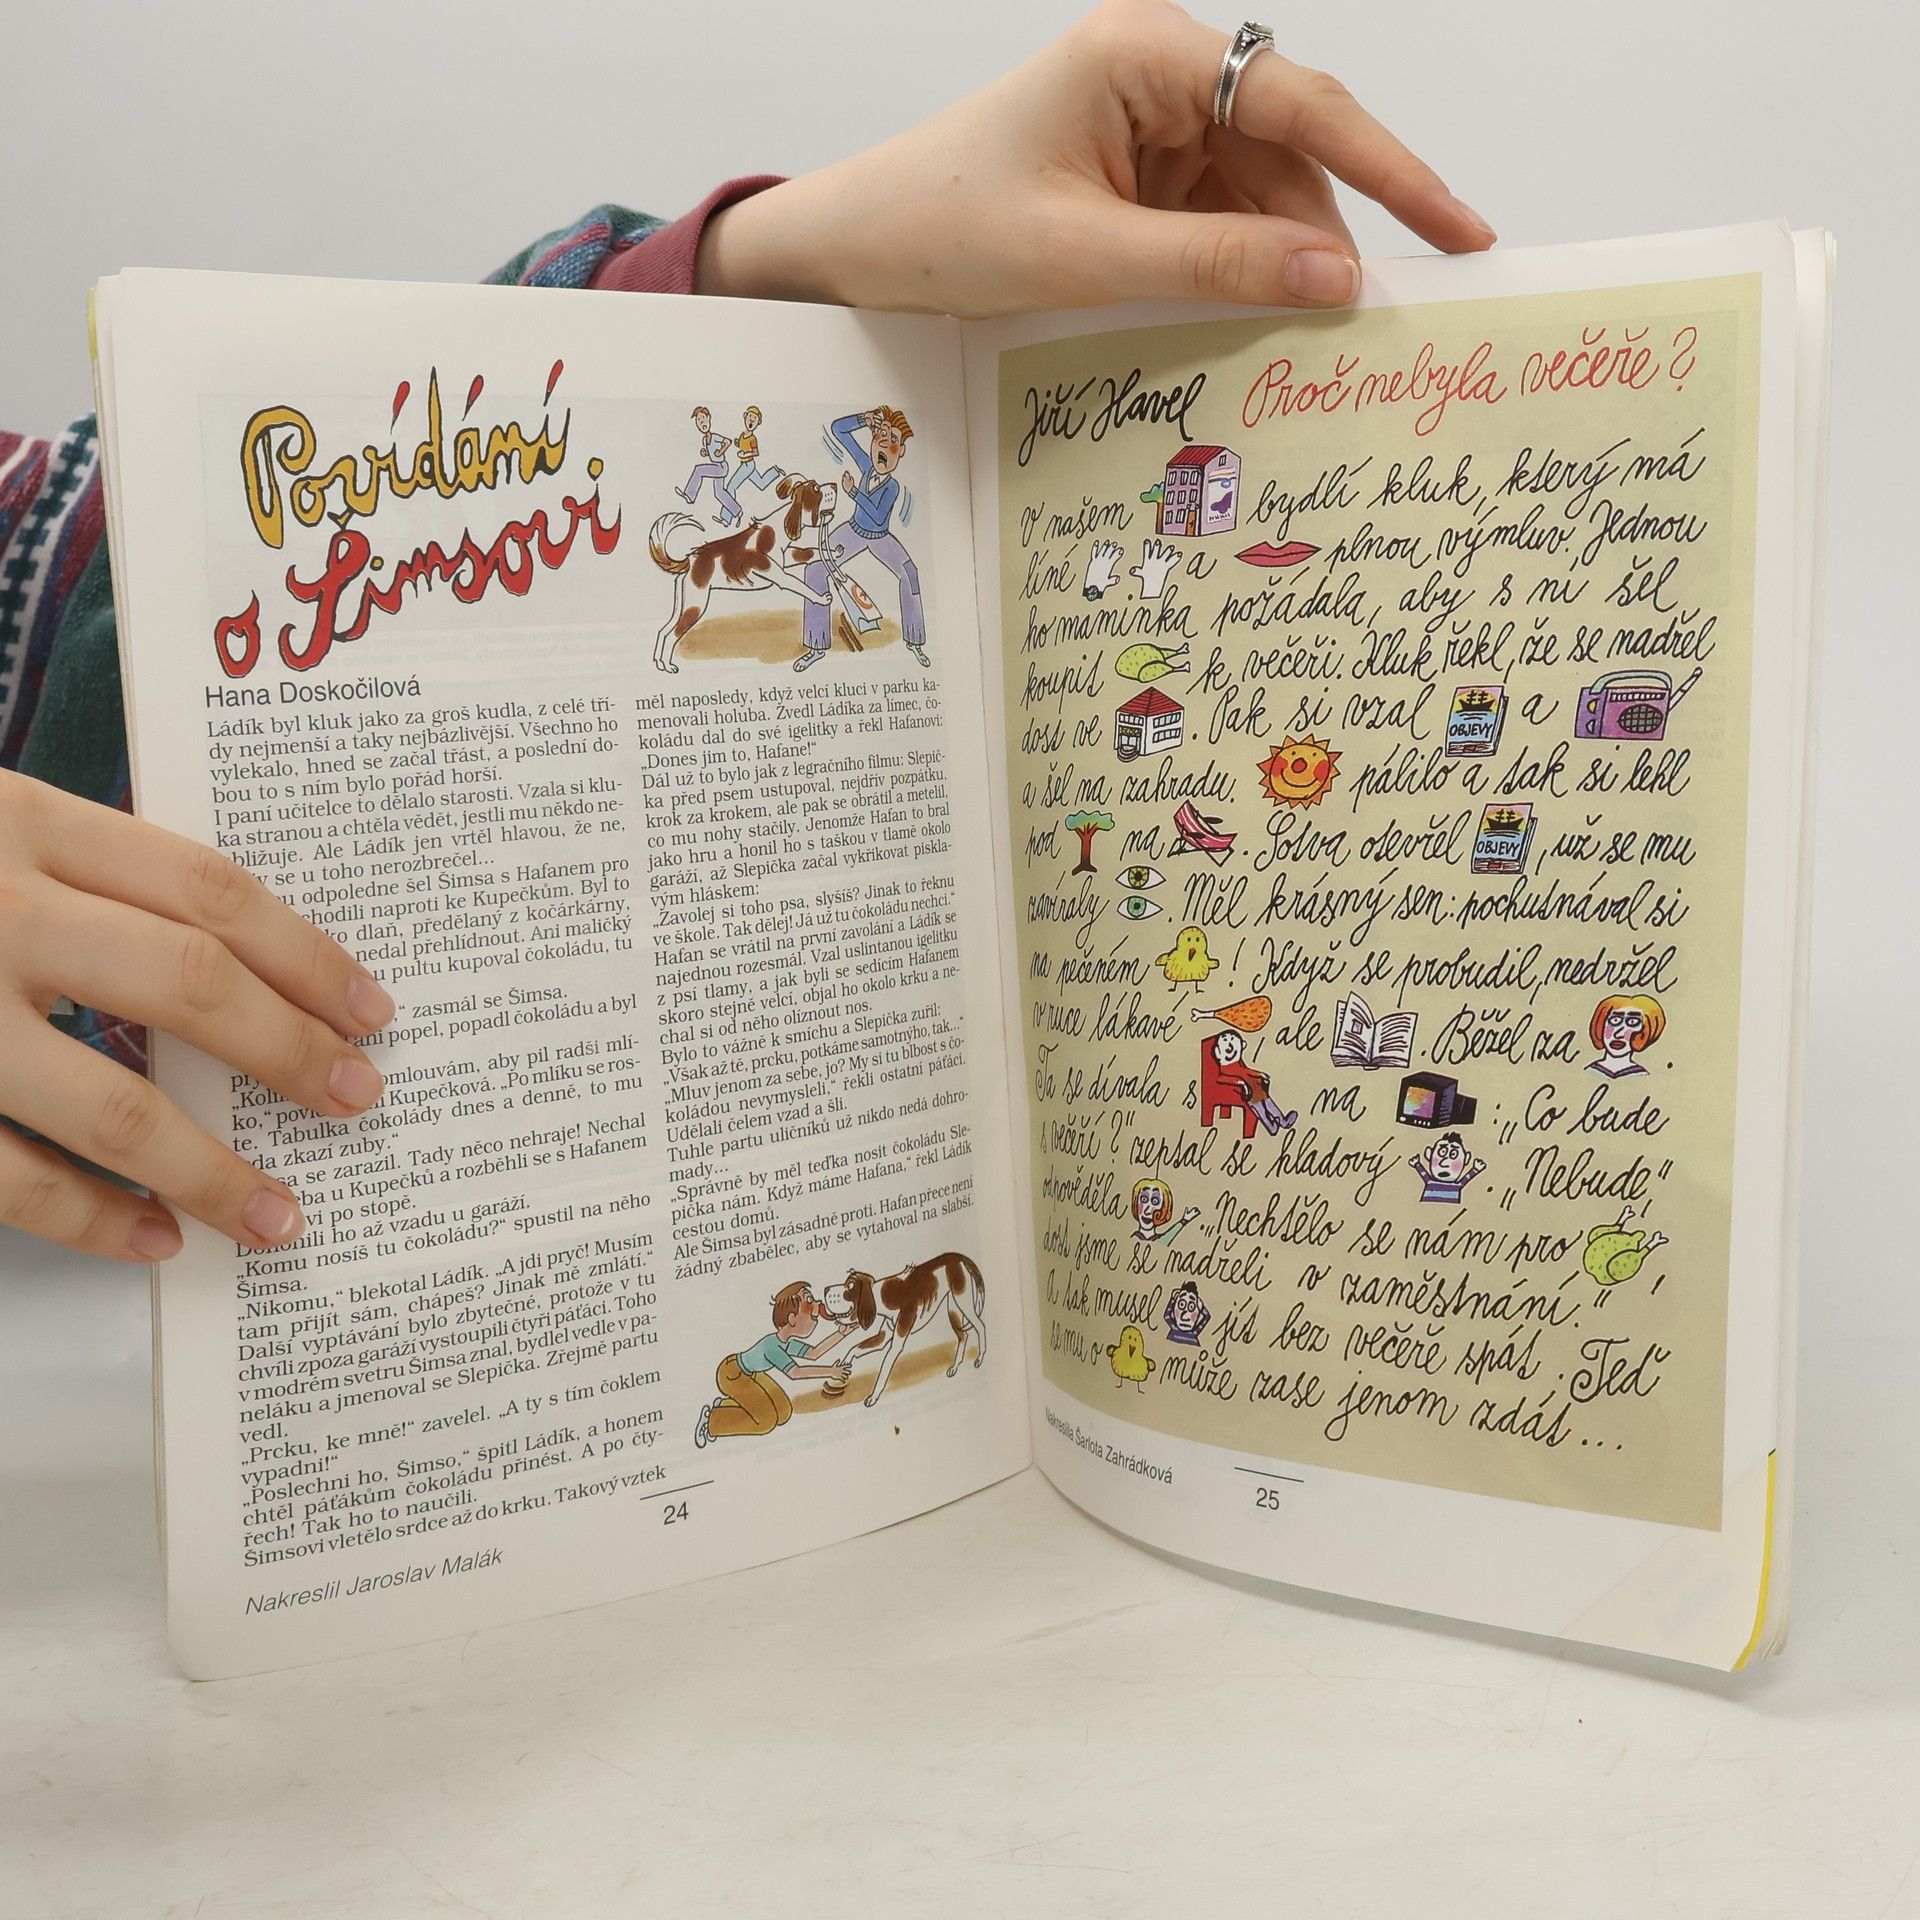 Povídání
o Šimsovi
Hana Doskočilová
Ládík byl kluk jako za groš kudla, z celé tří-
dy nejmenší a taky nejbázlivější. Všechno ho
vylekalo, hned se začal třást, a poslední do-
bou to s ním bylo pořád horší.
I paní učitelce to dělalo starosti. Vzala si klu-
ka stranou a chtěla vědět, jestli mu někdo ne-
ubližuje. Ale Ládík jen vrtěl hlavou, že ne,
se u toho nerozbrečel...
odpoledne šel Šimsa s Hafanem pro
chodili naproti ke Kupečkům. Byl to
ko dlaň, předělaný z kočárkárny,
nedal přehlídnout. Ani maličký
u pultu kupoval čokoládu, tu
“ zasmál se Šimsa.
ani popel, popadl čokoládu a byl
pry
omlouvám, aby pil radši mlí-
ko,“ Kupečková. „Po mlíku se ros-
te. Tabulka čokolády dnes a denně, to mu
da zkazí zuby.“
sa se zarazil. Tady něco nehraje! Nechal
eba u Kupečků a rozběhli se s Hafanem
vi po stopě.
Dohonili ho až vzadu u garáží.
„Komu nosíš tu čokoládu?“ spustil na něho
Šimsa.
„Nikomu,“ blekotal Ládík. „A jdi pryč! Musím
tam přijít sám, chápeš? Jinak mě zmlátí.“
Další vyptávání bylo zbytečné, protože v tu
chvíli zpoza garáží vystoupili čtyři páťáci. Toho
v modrém svetru Šimsa znal, bydlel vedle v pa-
neláku a jmenoval se Slepička. Zřejmě partu
vedl.
„Prcku, ke mně!“ zavelel. „A ty s tím čoklem
vypadni!“
„Poslechni ho, Šimso,“ špitl Ládík, a honem
chtěl páťákům čokoládu přinést. A po čty-
řech! Tak ho to naučili.
Šimsovi vletělo srdce až do krku. Takový vztek
měl naposledy, když velcí kluci v parku ka-
menovali holuba. Zvedl Ládíka za límec, čo-
koládu dal do své igelitky a řekl Hafanovi:
„Dones jim to, Hafane!“
Dál už to bylo jak z legračního filmu: Slepič-
ka před psem ustupoval, nejdřív pozpátku,
krok za krokem, ale pak se obrátil a metelil,
co mu nohy stačily. Jenomže Hafan to bral
jako hru a honil ho s taškou v tlamě okolo
garáží, až Slepička začal vykřikovat piskla-
vým hláskem:
„Zavolej si toho psa, slyšíš? Jinak to řeknu
ve škole. Tak dělej! Já už tu čokoládu nechci.“
Hafan se vrátil na první zavolání a Ládík se
najednou rozesmál. Vzal uslintanou igelitku
z psí tlamy, a jak byli se sedícím Hafanem
skoro stejně velcí, objal ho okolo krku a ne-
chal si od něho olíznout nos.
Bylo to vážně k smíchu a Slepička zuřil:
„Však až tě, prcku, potkáme samotnýho, tak...“
„Mluv jenom za sebe, jo? My si tu blbost s čo-
koládou nevymysleli,“ řekli ostatní páťáci.
Udělali čelem vzad a šli.
Tuhle partu uličníků už nikdo nedá dohro-
mady...
„Správně by měl teďka nosit čokoládu Sle-
pička nám. Když máme Hafana,“ řekl Ládík
cestou domů.
Ale Šimsa byl zásadně proti. Hafan přece není
žádný zbabělec, aby se vytahoval na slabší.
24
Nakreslil Jaroslav Malák
Jiří Havel Proč nebyla večeře?
V našem bydlí kluk, který má
líné a plnou výmluv. Jednou
ho maminka požádala, aby s ní šel
koupit k večeři. Kluk řekl, že se nadřel
dost ve . Pak si vzal OBJEVY a
a šel na zahradu. pálilo a tak si lehl
pod na . Sotva otevřel OBJEVY, už se mu
zavíraly . Měl krásný sen: pochutnával si
na pečeném ! Když se probudil, nedržel
v ruce lákavé , ale . Běžel za .
Ta se dívala s na : „Co bude
s večeří?“ zeptal se hladový . „Nebude,“
odpověděla . „Nechtělo se nám pro ,
dost jsme se nadřeli v zaměstnání.“
A tak musel jít bez večeře spát. Teď
se mu o může zase jenom zdát...
Nakreslila Šarlota Zahrádková
25